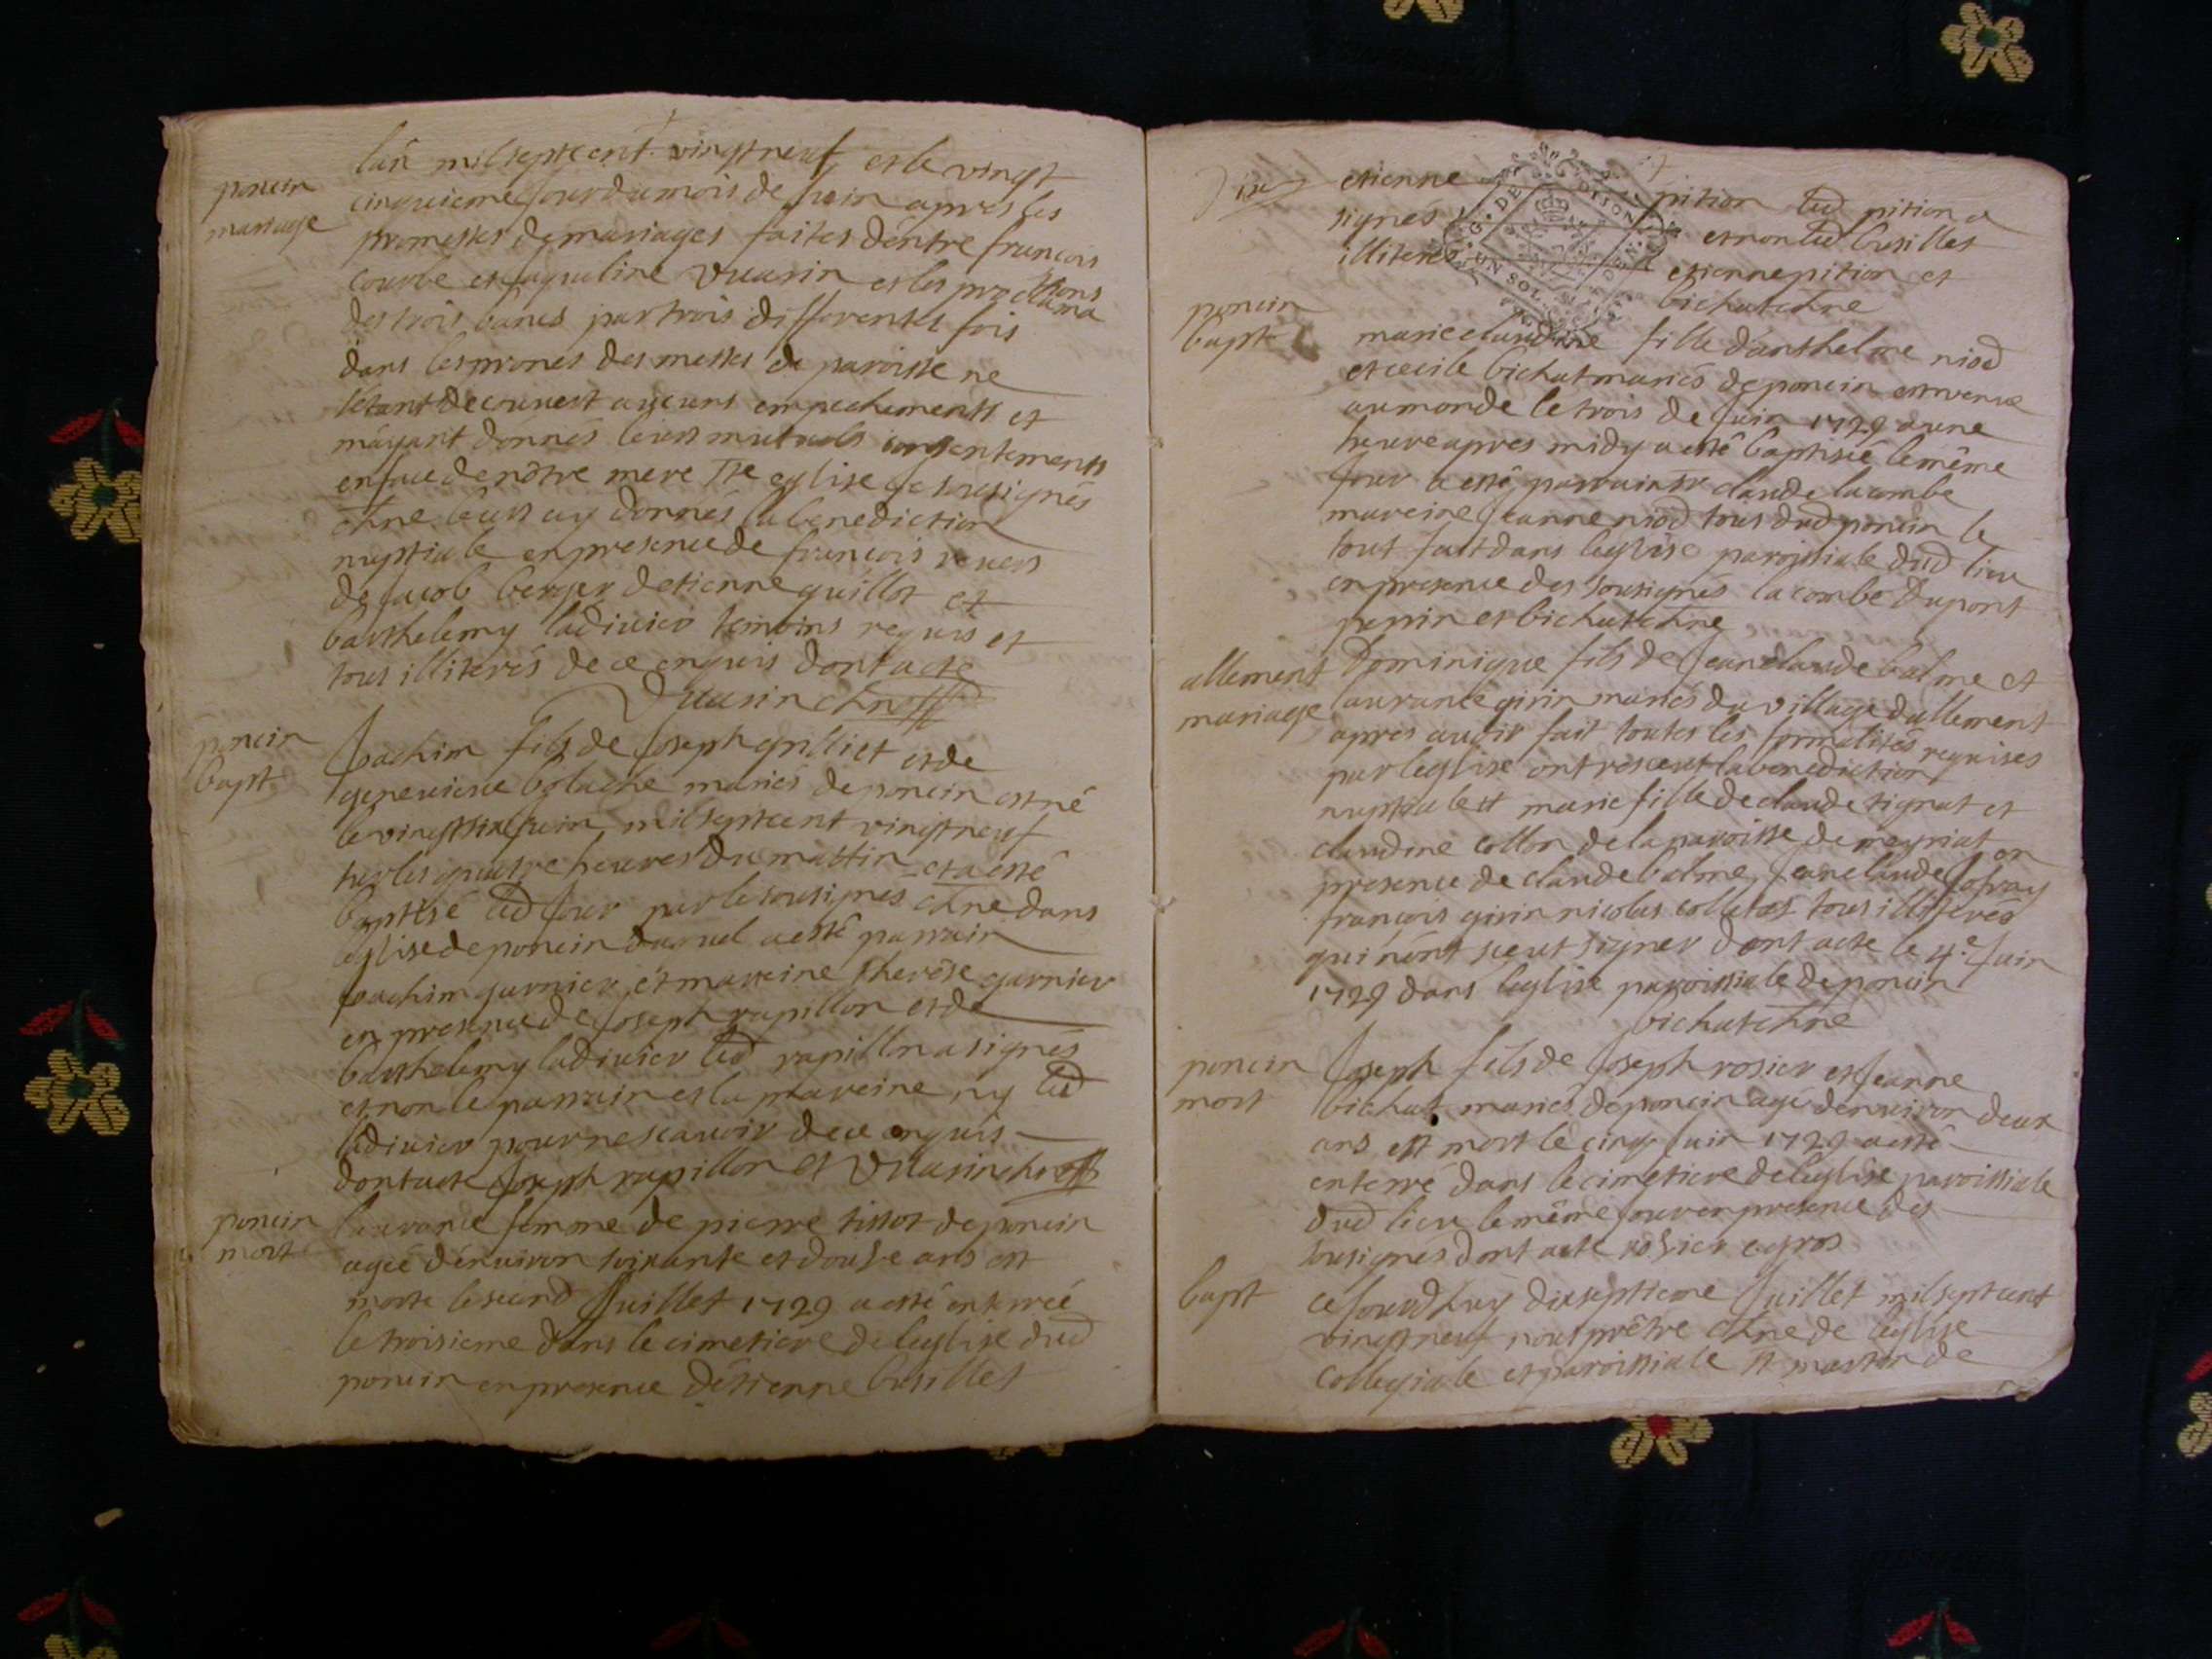 poncin
mariage
lan milseptcent vingtneuf et le vingt
cinquieme jour du mois de juin apres les
promesses de mariages faites dentre francois
courbe et jaqueline vuarin et les proclama
tions
des trois bancs par trois differentes fois
dans les prones des messes de paroisse ne
setant decouvert aucuns empechements et
mayant donnés leurs mutuels consentements
en face de nôtre mere Ste eglise je sousignés
chne leurs ay donnés la benediction
nuptiale en presence de francois
de jacob berger detienne guillot et
barthelemy ladivier temoins requis et
tous illiterés de ce enquis dont acte
Vuarin chne
poncin
bapt
Joachim fils de joseph grilliet et de
genevieve bolache mariés de poncin est né
le vingtsix juin milseptcent vingtneuf
sur les quatre heures du mattin et a esté
baptisé led jour par le sousignés chne dans
leglise de poncin duquel a esté parrain
joachim garnier et mareine therese garnier
en presence de joseph rapillon et de
barthelemy ladivier led rapillon a signés
et non le parrain et la mareine ny led
ladivier pour ne scavoir de ce enquis
dont acte joseph rapillon et Vuarin chne
poncin
mort
laurance femme de pierre tissot de poncin
agée denviron soixante et douse ans est
morte le second juillet 1729 a esté enterrée
le troisieme dans le cimetiere de leglise dud
poncin en presence détienne busillet
dix
etienne pition led pition a
signés et non led busillet
illiterés etienne pition et
bichat chne
G. DE DIJON
UN SOL
poncin
bapt
marie claudine fille danthelme niod
et cecile bichat mariés de poncin est venue
au monde le trois de juin 1729 a une
heure apres midy a esté baptisée le même
jour a esté parrain sr claude lacombe
mareine jeanne niod tous dud poncin le
tout fait dans leglise paroissiale dud lieu
en presence des sousignés lacombe dupont
et bichat chne
allement
mariage
Dominique fils de jean claude balme et
laurance girin mariés du village dallement
apres avoir fait toutes les formalités requises
par leglise ont resceut la benediction
nuptiale et marie fille de claude tignat et
claudine collon de la paroisse de meyriat en
presence de claude balme, jean claude jofray
françois girin nicolas collet tous illiterés
qui nont sceut signer dont acte le 4e juin
1729 dans leglise paroissiale de poncin
bichat chne
poncin
mort
Joseph fils de joseph rosier et jeanne
bichat mariés de poncin agé denviron deux
ans est mort le cinq juin 1729 a esté
enterré dans le cimetiere de leglise paroissiale
dud lieu le même jour en presence des
sousignés dont acte rosier cogros
bapt
ce jourdhuy dixseptieme juillet milseptcent
vingtneuf nous prêtre chne de leglise
collegiale et paroissiale st martin de